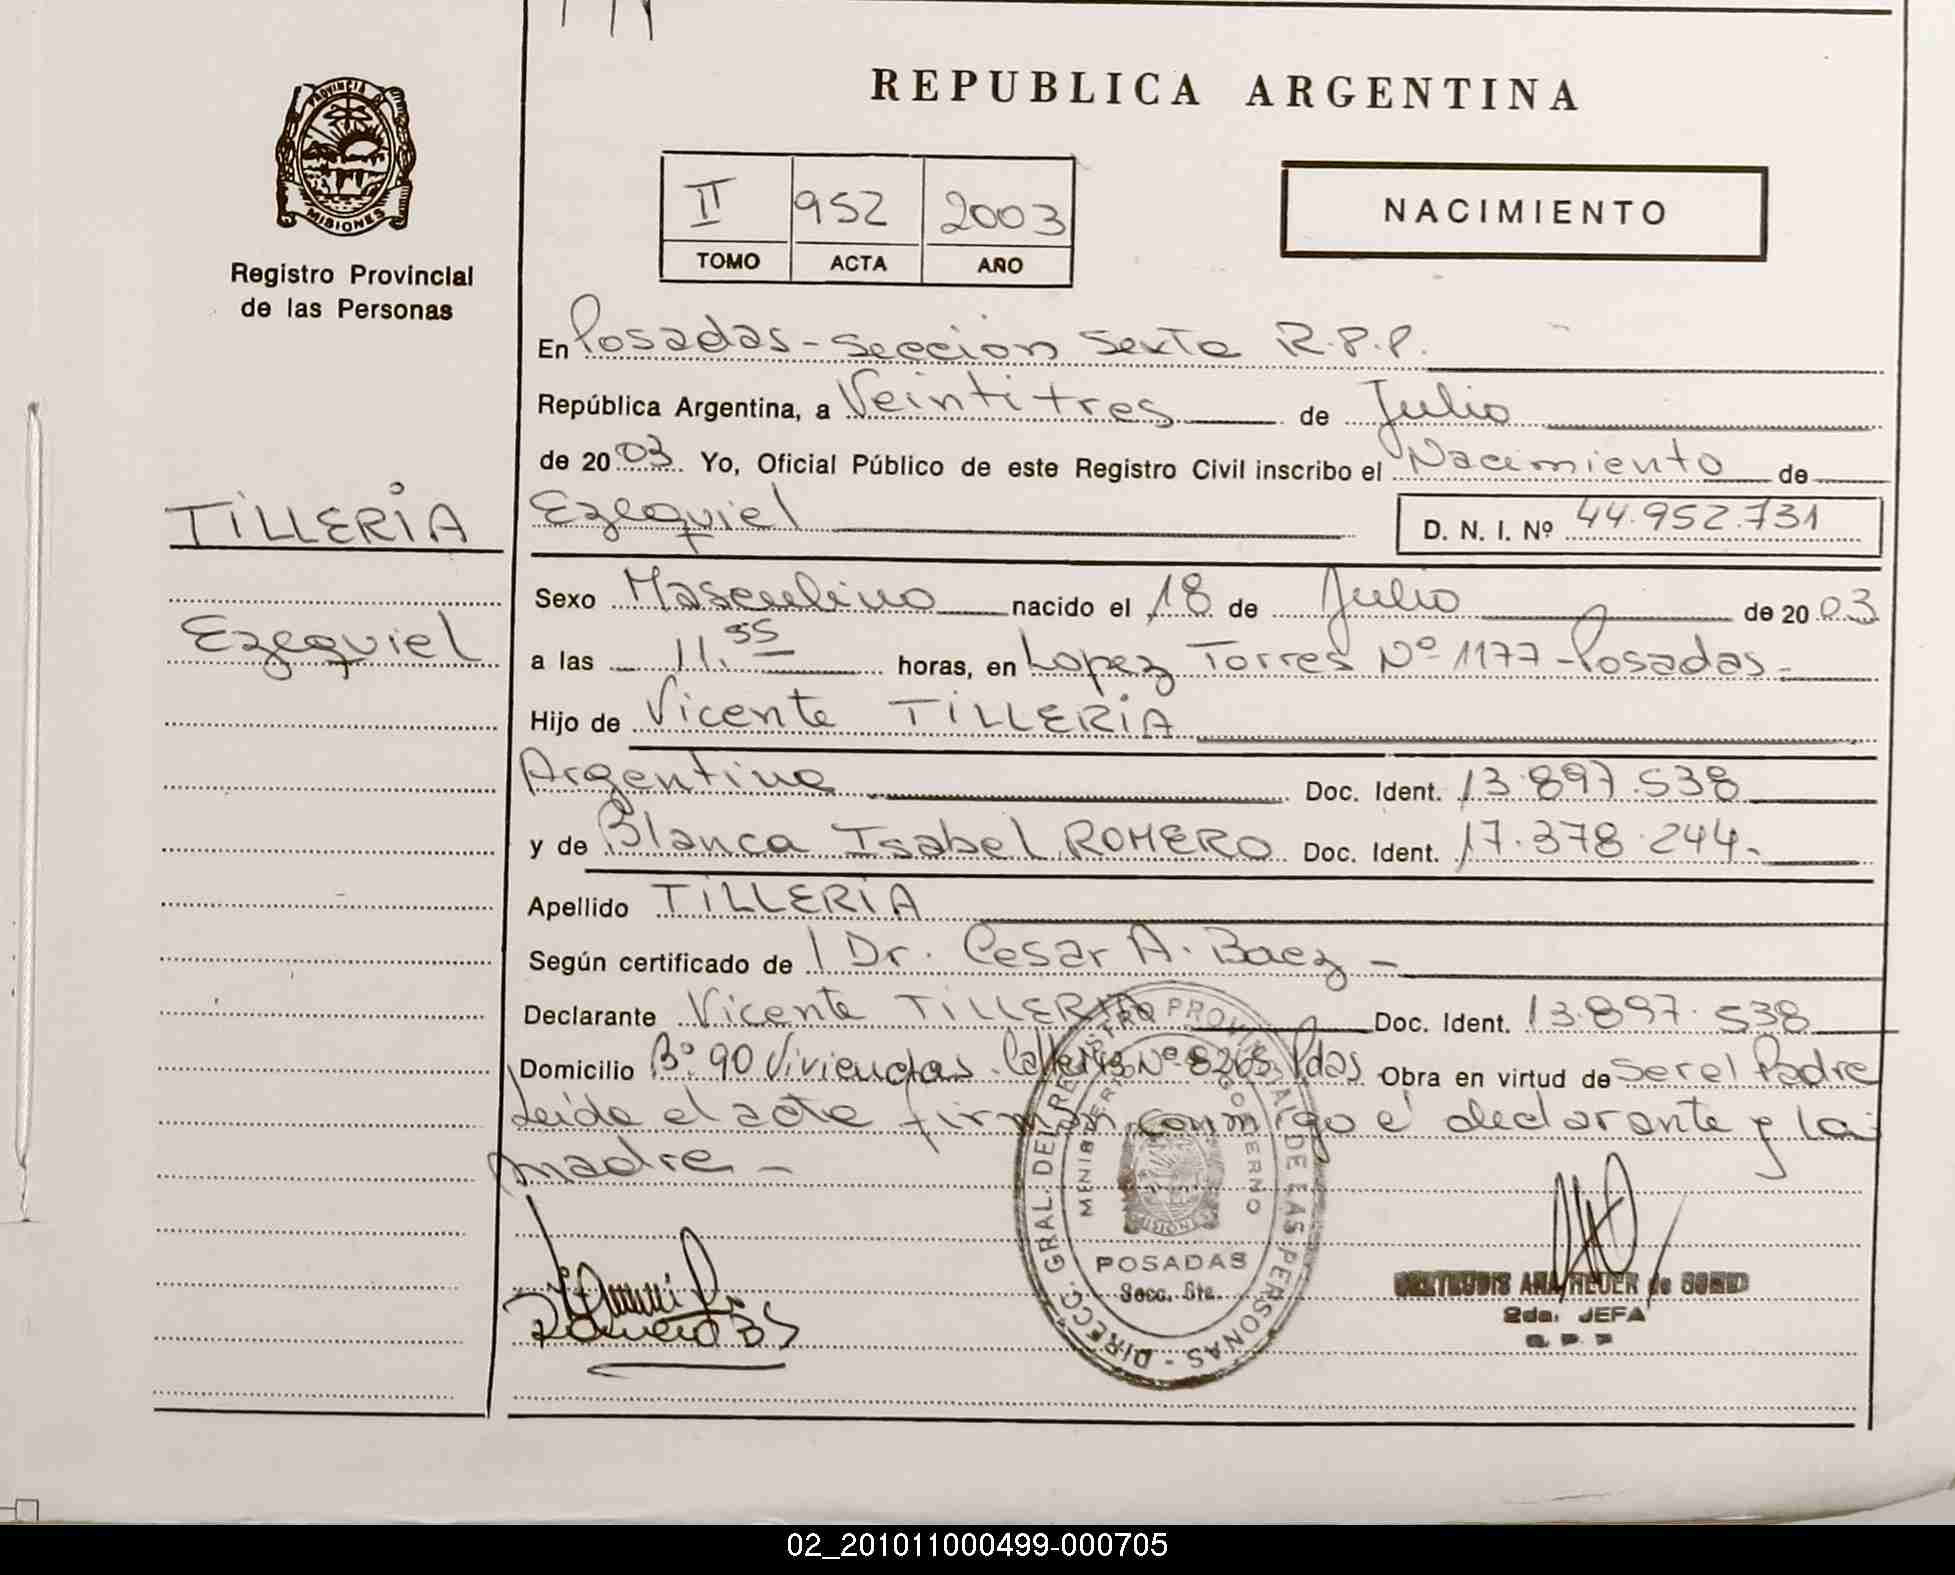 REPUBLICA ARGENTINA
PROVINCIA D
MISIONES
Registro Provincial
de las Personas
II 952 2003
TOMO ACTA AÑO
NACIMIENTO
En Posadas - Seccion Sexta R.P.P.
República Argentina, a Veintitres de Julio
de 2003 Yo, Oficial Público de este Registro Civil inscribo el Nacimiento de
TiLLERiA
Ezequiel
Ezequiel D. N. I. Nº 44.952.731
Sexo Masculino nacido el 18 de Julio de 2003
a las 11.55 horas, en Lopez Torres Nº 1177 - Posadas -
Hijo de Vicente TiLLERiA
Argentina Doc. Ident. 13.897.538
y de Blanca Isabel ROMERO Doc. Ident. 17.378.244.
Apellido TiLLERiA
Según certificado de Dr. Cesar A. Baez -
Declarante Vicente TiLLERiA Doc. Ident. 13.897.538
Domicilio Bº 90 Viviendas. Nº 8265 Pdas Obra en virtud de ser el Padre
Leida el acta firman conmigo el declarante y la
madre -
DIRECC. GRAL. DEL REGISTRO PROVINCIAL DE LAS PERSONAS -
MINISTERIO GOBIERNO
POSADAS
Secc. 6ta.
Romero BS
ANA HEUER de
2da. JEFA
R. P. P.
02_201011000499-000705